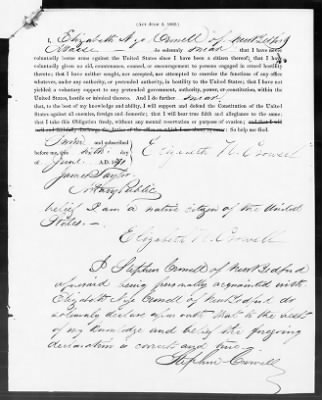 (ACT JULY 2, 1862.)
I, Elizabeth Nye Crowell of New Bedford
do solemnly swear that I have never
voluntarily borne arms against the United States since I have been a citizen thereof; that I have
voluntarily given no aid, countenance, counsel, or encouragement to persons engaged in armed hostility
thereto; that I have neither sought nor accepted, nor attempted to exercise the functions of any office
whatever, under any authority, or pretended authority, in hostility to the United States; that I have not
yielded a voluntary support to any pretended government, authority, power, or constitution, within the
United States, hostile or inimical thereto. And I do further swear
that, to the best of my knowledge and ability, I will support and defend the Constitution of the United
States against all enemies, foreign and domestic; that I will bear true faith and allegiance to the same;
that I take this obligation freely, without any mental reservation or purpose of evasion; and that I will
well and faithfully discharge the duties of the office on which I am about to enter: So help me God.
Sworn and subscribed
before me this sixth day
of June A.D.
James Taylor
Notary Public
Elizabeth N. Crowell
belief I am a native citizen of the United
States.
Elizabeth N. Crowell
I Stephen Crowell of New Bedford
aforesaid being personally acquainted with
Elizabeth Nye Crowell of New Bedford do
solemnly declare upon oath that to the best
of my knowledge and belief the foregoing
declaration is correct and true.
Stephen Crowell